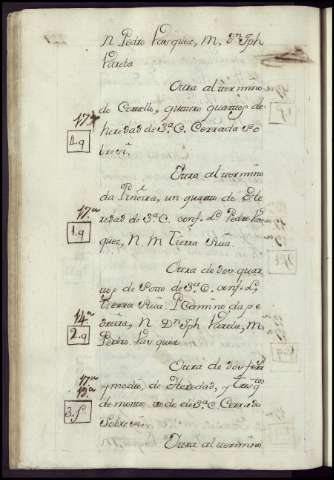 N. Pedro Vazquez, M. Dn. Jph
Varela
Otra al termino
de Cerrillo, quatro quartos de
heredad de 3ª C. Cerrada so
bre si.
17ª
4.q
Otra al termino
da Piñeira, un quarto de He
redad de 3ª C. conf. L. Pedro Vaz
quez, N. M. Tierra suia.
17ª
1.q
Otra de dos quar
tos de Soto de 3ª C. conf. L.
tierra suia. P. Camino da pe
dreira, N. Dn. Jph Varela, M.
Pedro Vazquez
14ª
2.q
Otra de dos ferr
y medio, de Heredad, y
de monte todo de 3ª C. Cerrado
sobre si.
17ª
19ª
3.f
Otra al termino